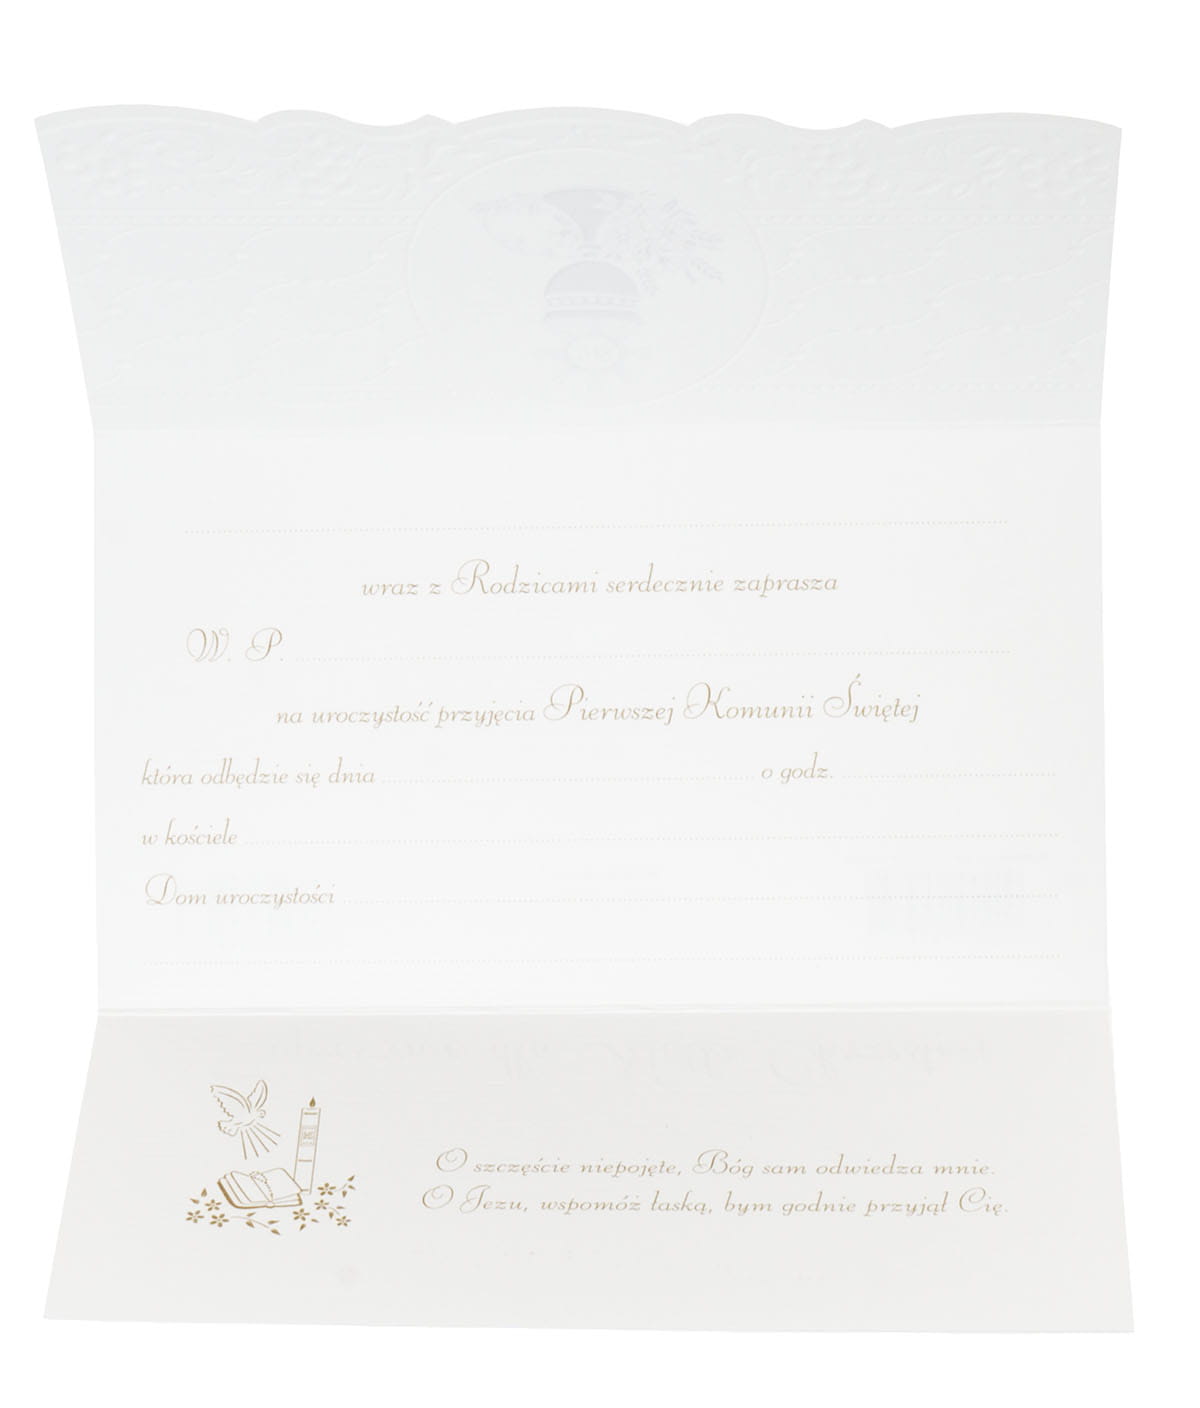 wraz z Rodzicami serdecznie zaprasza
W. P.
na uroczystość przyjęcia Pierwszej Komunii Świętej
która odbędzie się dnia o godz.
w kościele
Dom uroczystości
O szczęście niepojęte, Bóg sam odwiedza mnie.
O Jezu, wspomóż łaską, bym godnie przyjął Cię.